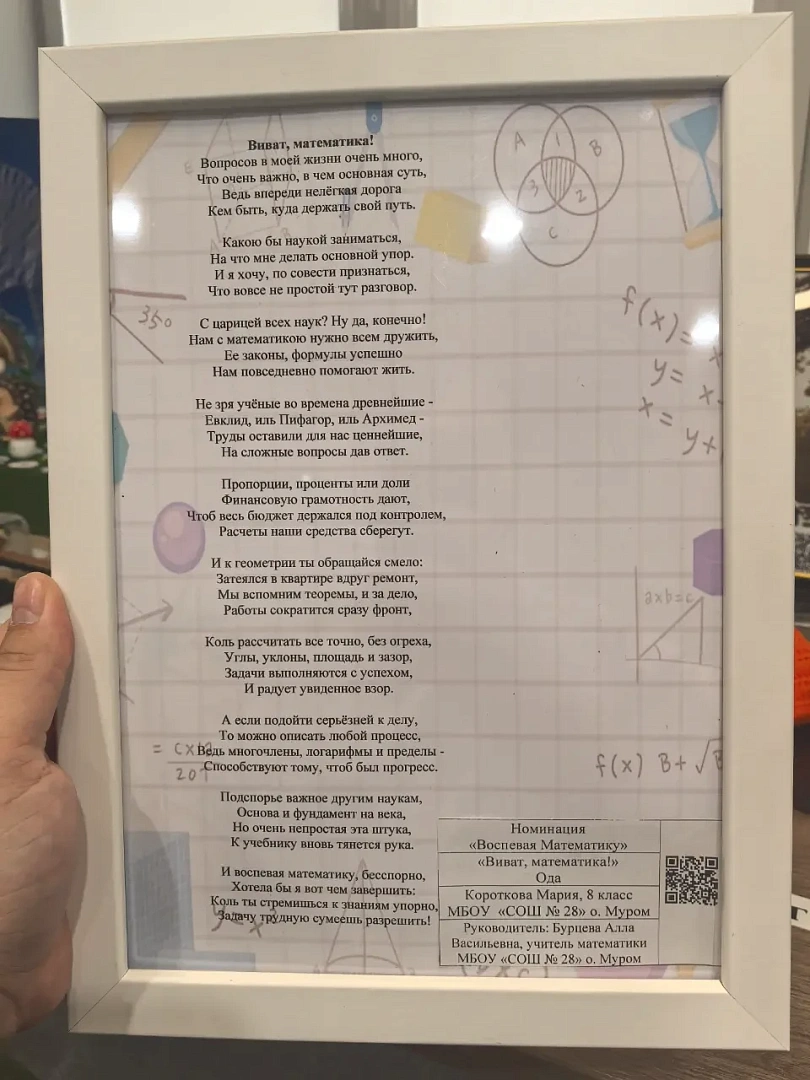 Виват, математика!
Вопросов в моей жизни очень много,
Что очень важно, в чем основная суть,
Ведь впереди нелёгкая дорога
Кем быть, куда держать свой путь.
Какою бы наукой заниматься,
На что мне делать основной упор.
И я хочу, по совести признаться,
Что вовсе не простой тут разговор.
С царицей всех наук? Ну да, конечно!
Нам с математикою нужно всем дружить,
Ее законы, формулы успешно
Нам повседневно помогают жить.
Не зря учёные во времена древнейшие -
Евклид, иль Пифагор, иль Архимед -
Труды оставили для нас ценнейшие,
На сложные вопросы дав ответ.
Пропорции, проценты или доли
Финансовую грамотность дают,
Чтоб весь бюджет держался под контролем,
Расчеты наши средства сберегут.
И к геометрии ты обращайся смело:
Затеялся в квартире вдруг ремонт,
Мы вспомним теоремы, и за дело,
Работы сократится сразу фронт,
Коль рассчитать все точно, без огреха,
Углы, уклоны, площадь и зазор,
Задачи выполняются с успехом,
И радует увиденное взор.
А если подойти серьёзней к делу,
То можно описать любой процесс,
Ведь многочлены, логарифмы и пределы -
Способствуют тому, чтоб был прогресс.
Подспорье важное другим наукам,
Основа и фундамент на века,
Но очень непростая эта штука,
К учебнику вновь тянется рука.
И воспевая математику, бесспорно,
Хотела бы я вот чем завершить:
Коль ты стремишься к знаниям упорно,
Задачу трудную сумеешь разрешить!
A 1 B
3 2
C
350
f(x)=
y= x
x=
yx
axb=c
f(x) B+√
Номинация
«Воспевая Математику»
«Виват, математика!»
Ода
Короткова Мария, 8 класс
МБОУ «СОШ № 28» о. Муром
Руководитель: Бурцева Алла
Васильевна, учитель математики
МБОУ «СОШ № 28» о. Муром